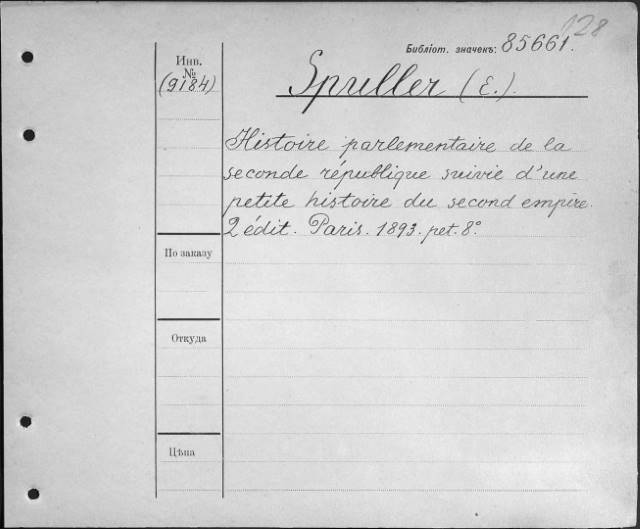 128
Библіот. значекъ: 85661.
Инв.
№
(9184)
Spuller (E.).
Histoire parlementaire de la
seconde république suivie d'une
petite histoire du second empire.
2 édit. Paris. 1893. pet. 8º
По заказу
Откуда
Цѣна